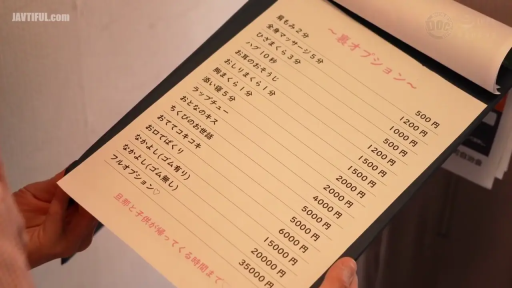 JAVTIFUL.com
～裏オプション～
肩もみ2分 500円
全身マッサージ5分 1200円
ひざまくら3分 1000円
ハグ10秒 500円
お耳のおそうじ 1200円
おしりまくら1分 1500円
胸まくら1分 1500円
添い寝5分 2000円
ラップチュー 2000円
おとなのキス 4000円
ちくびのお世話 5000円
おててコキコキ 5000円
お口でぱくり 6000円
なかよし(ゴム有り) 15000円
なかよし(ゴム無し) 20000円
フルオプション♡ 35000円
旦那と子供が帰ってくる時間まで